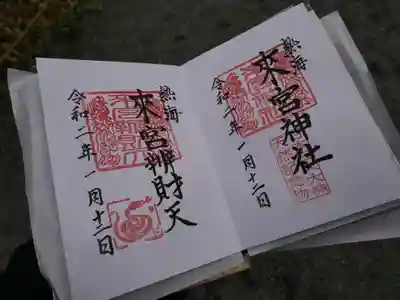 熱海
來宮神社
令和二年一月十二日
熱海
來宮辨財天
令和二年一月十二日